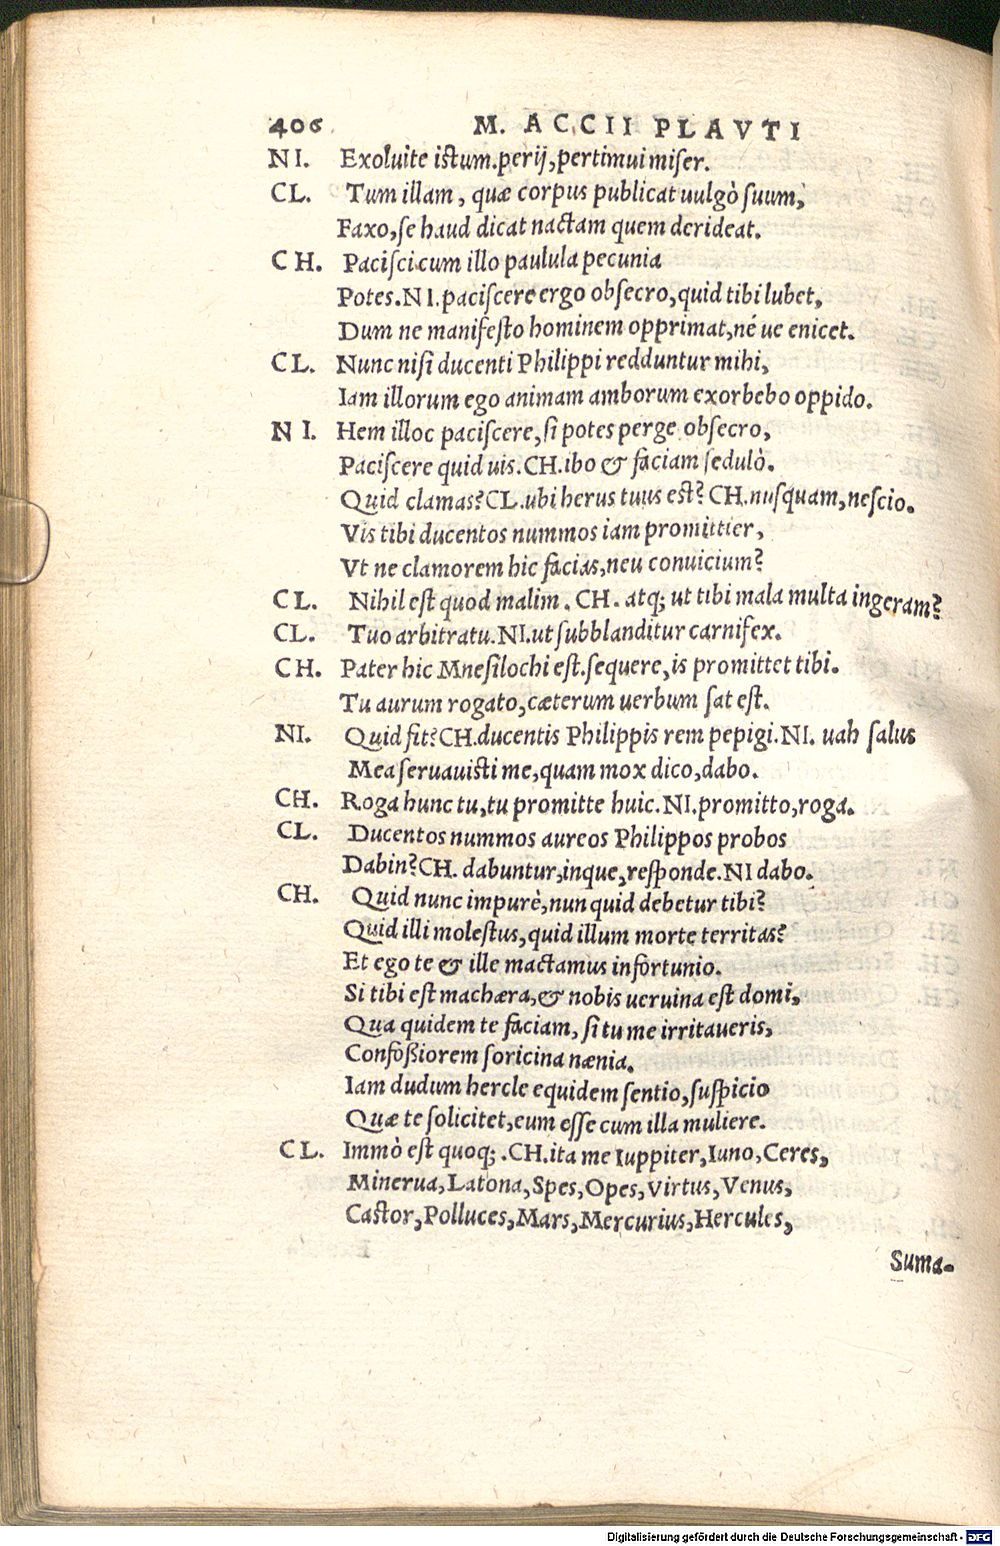 406 M. ACCII PLAVTI
NI. Exoluite istum.perij,pertimui miser.
CL. Tum illam, quæ corpus publicat uulgò suum,
Faxo,se haud dicat nactam quem derideat.
CH. Pacisci cum illo paulula pecunia
Potes.NI.paciscere ergo obsecro,quid tibi lubet,
Dum ne manifesto hominem opprimat,né ue enicet.
CL. Nunc nisi ducenti Philippi redduntur mihi,
Iam illorum ego animam amborum exorbebo oppido.
NI. Hem illoc paciscere,si potes perge obsecro,
Paciscere quid uis.CH.ibo & faciam sedulò.
Quid clamas?CL.ubi herus tuus est?CH.nusquam,nescio.
Vis tibi ducentos nummos iam promittier,
Vt ne clamorem hic facias,neu conuicium?
CL. Nihil est quod malim. CH. atq; ut tibi mala multa ingeram?
CL. Tuo arbitratu.NI.ut subblanditur carnifex.
CH. Pater hic Mnesilochi est.sequere,is promittet tibi.
Tu aurum rogato,cæterum uerbum sat est.
NI. Quid fit?CH.ducentis Philippis rem pepigi.NI. uah salus
Mea seruauisti me,quam mox dico,dabo.
CH. Roga hunc tu,tu promitte huic.NI.promitto,roga.
CL. Ducentos nummos aureos Philippos probos
Dabin?CH. dabuntur,inque,responde.NI dabo.
CH. Quid nunc impurè,nunquid debetur tibi?
Quid illi molestus,quid illum morte territas?
Et ego te & ille mactamus infortunio.
Si tibi est machæra,& nobis ueruina est domi,
Qua quidem te faciam, si tu me irritaueris,
Confoßiorem soricina nænia.
Iam dudum hercle equidem sentio,suspicio
Quæ te solicitet,eum esse cum illa muliere.
CL. Immò est quoq; .CH.ita me Iuppiter,Iuno,Ceres,
Minerua,Latona,Spes,Opes,Virtus,Venus,
Castor,Polluces,Mars,Mercurius,Hercules,
Suma-
Digitalisierung gefördert durch die Deutsche Forschungsgemeinschaft - DFG